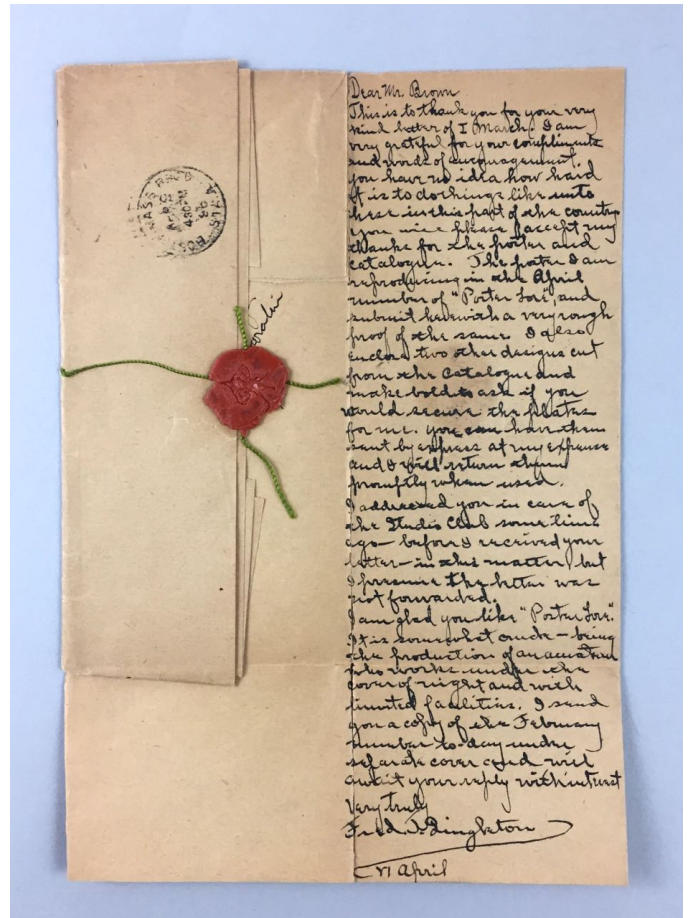 Dear Mr. Brown
This is to thank you for your very
kind letter of 1 March. I am
very grateful for your compliments
and words of encouragement.
you have no idea how hard
it is to do things like unto
these in this part of the country
you will please accept my
thanks for the poster and
catalogue. The poster I am
reproducing in the April
number of "Poster Lore", and
submit herewith a very rough
proof of the same. I also
enclose two other designs cut
from the Catalogue and
make bold to ask if you
would secure the plates
for me. you can have them
sent by express at my expense
and I will return them
promptly when used.
I addressed you in care of
the Studio Club some time
ago — before I received your
letter — in this matter, but
I presume the letter was
not forwarded.
I am glad you like "Poster Lore."
It is somewhat crude — being
the production of an amateur
who works under the
cover of night and with
limited facilities. I send
you a copy of the February
number to-day under
separate cover and will
await your reply with interest
Very truly
Fred.
April
MASS
430PM
96